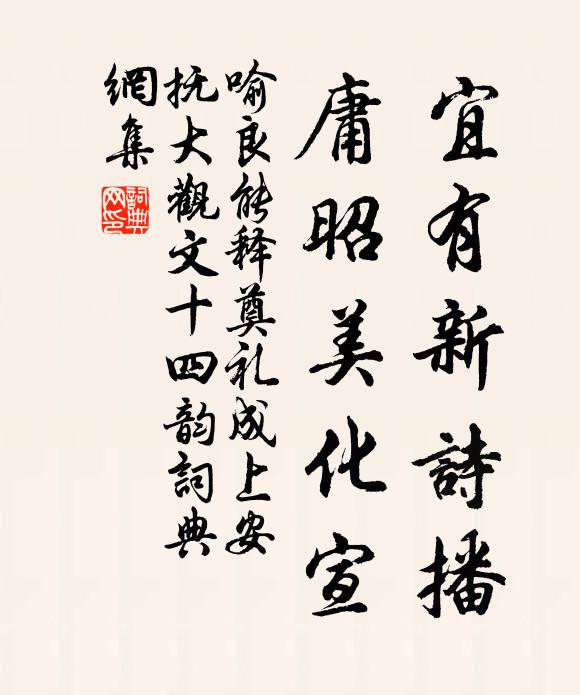 宜有新詩播
庸昭美化宣
喻良能释奠礼成上安
抚大觀文十四韵詞典
網集
詞典
网印